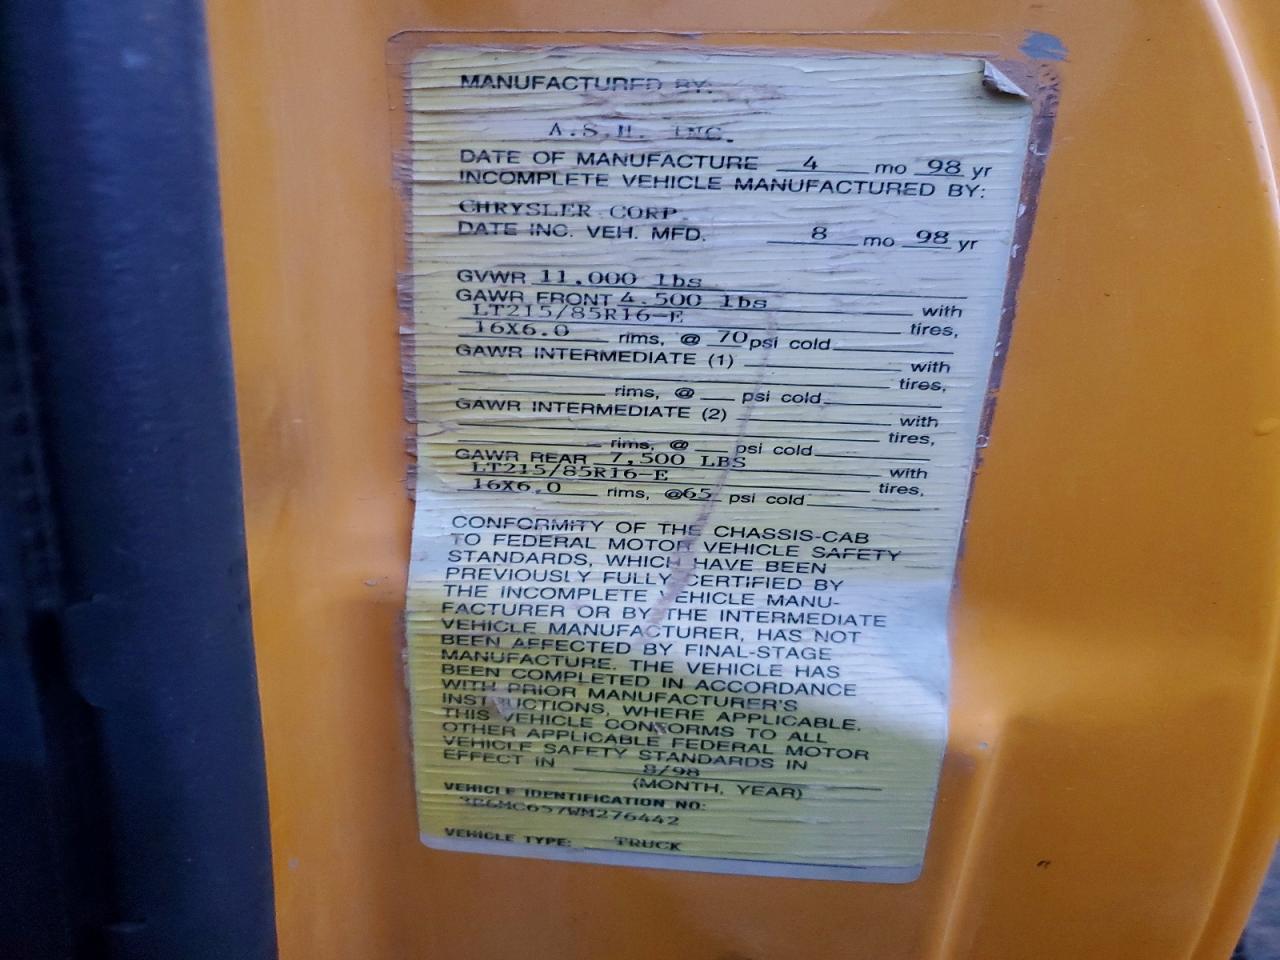 MANUFACTURED BY:
A.S.H. INC.
DATE OF MANUFACTURE 4 mo 98 yr
INCOMPLETE VEHICLE MANUFACTURED BY:
CHRYSLER CORP
DATE INC. VEH. MFD. 8 mo 98 yr
GVWR 11,000 lbs
GAWR FRONT 4,500 lbs with
LT215/85R16-E tires,
16X6.0 rims, @ 70 psi cold
GAWR INTERMEDIATE (1) with
tires,
rims, @ psi cold
GAWR INTERMEDIATE (2) with
tires,
rims, @ psi cold
GAWR REAR 7,500 LBS with
LT215/85R16-E tires,
16X6.0 rims, @65 psi cold
CONFORMITY OF THE CHASSIS-CAB
TO FEDERAL MOTOR VEHICLE SAFETY
STANDARDS, WHICH HAVE BEEN
PREVIOUSLY FULLY CERTIFIED BY
THE INCOMPLETE VEHICLE MANU-
FACTURER OR BY THE INTERMEDIATE
VEHICLE MANUFACTURER, HAS NOT
BEEN AFFECTED BY FINAL-STAGE
MANUFACTURE. THE VEHICLE HAS
BEEN COMPLETED IN ACCORDANCE
WITH PRIOR MANUFACTURER'S
INSTRUCTIONS, WHERE APPLICABLE.
THIS VEHICLE CONFORMS TO ALL
OTHER APPLICABLE FEDERAL MOTOR
VEHICLE SAFETY STANDARDS IN
EFFECT IN 8/98
(MONTH, YEAR)
VEHICLE IDENTIFICATION NO:
3B6MC657WM276442
VEHICLE TYPE: TRUCK